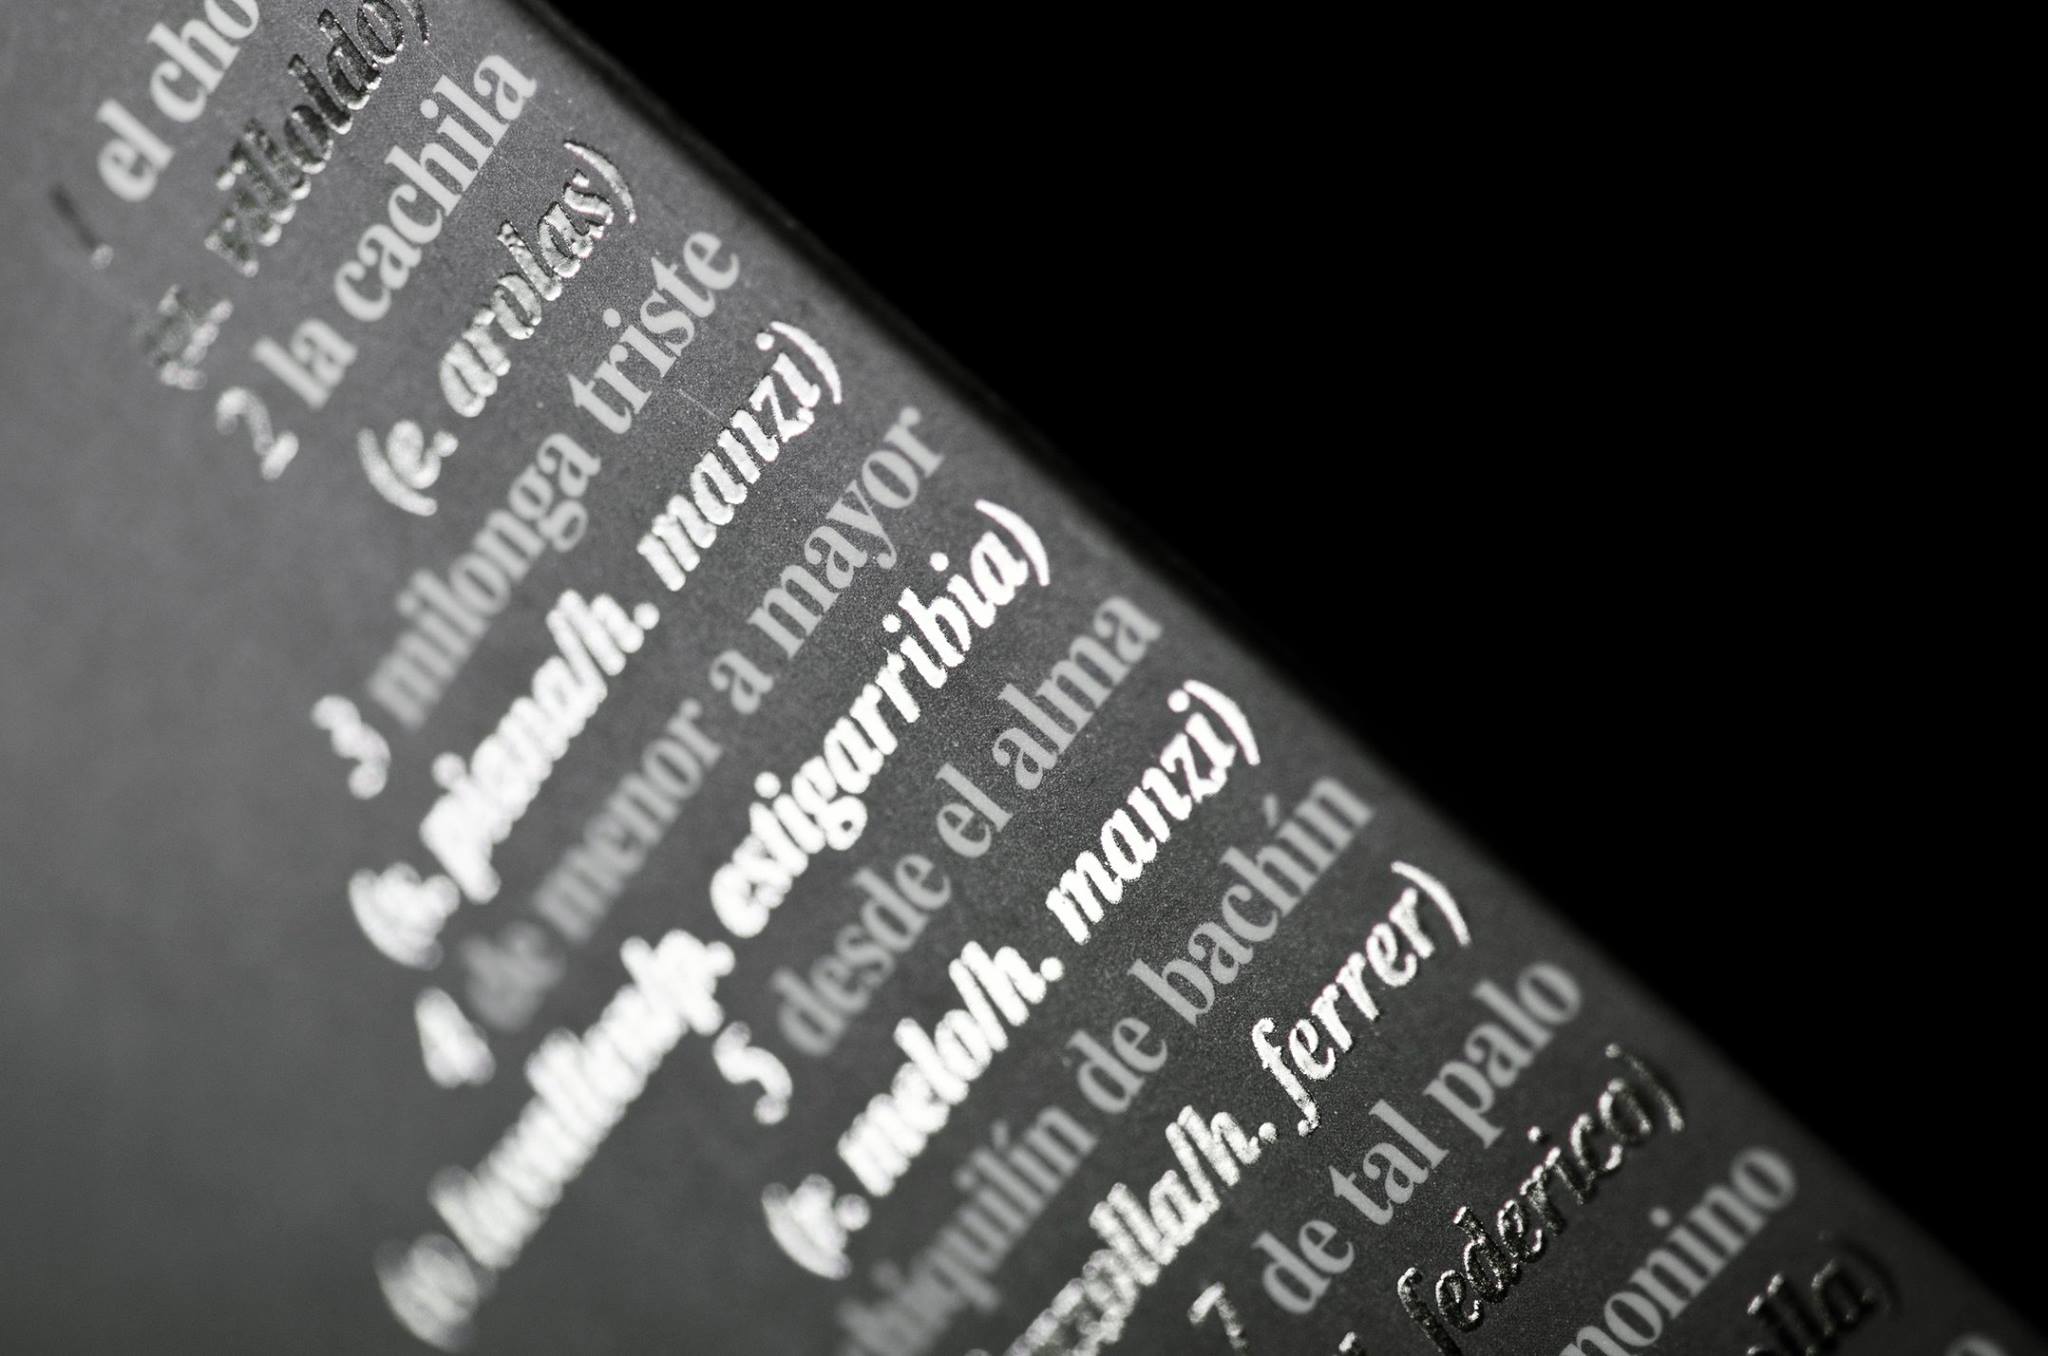 1 el cho
villoldo)
2 la cachila
(e. arolas)
3 milonga triste
piana/h. manzi)
4 de menor a mayor
estigarribia)
5 desde el alma
(r. melo/h. manzi)
hiquilín de bachín
zzolla/h. ferrer)
7 de tal palo
federico)
nonino
olla)